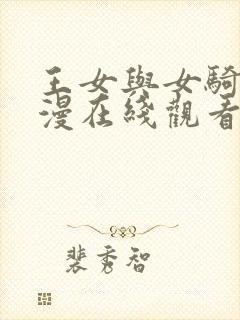 王女與女騎
漫在綫觀看
裴秀智